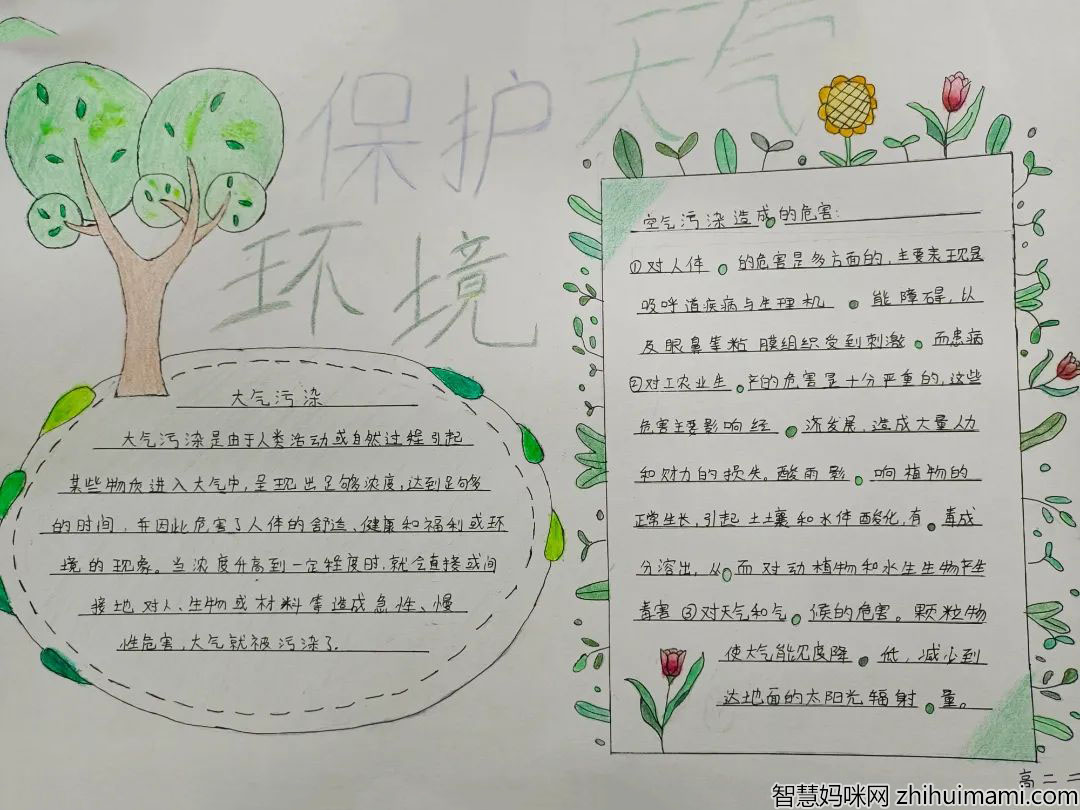 保护 天气
环境
大气污染
大气污染是由于人类活动或自然过程引起
某些物质进入大气中,呈现出足够浓度,达到足够
的时间,并因此危害了人体的舒适、健康和福利或环
境的现象。当浓度升高到一定程度时,就会直接或间
接地对人、生物或材料等造成急性、慢
性危害,大气就被污染了.
空气污染造成的危害:
①对人体的危害是多方面的,主要表现是
吸呼道疾病与生理机能障碍,以
及眼鼻等粘膜组织受到刺激而患病
②对工农业生产的危害是十分严重的,这些
危害主要影响经济发展,造成大量人力
和财力的损失。酸雨影响植物的
正常生长,引起土壤和水体酸化,有毒成
分溶出,从而对动植物和水生生物产生
毒害③对天气和气候的危害。颗粒物
使大气能见度降低,减少到
达地面的太阳光辐射量。
高二二
智慧妈咪网 zhihuimami.com